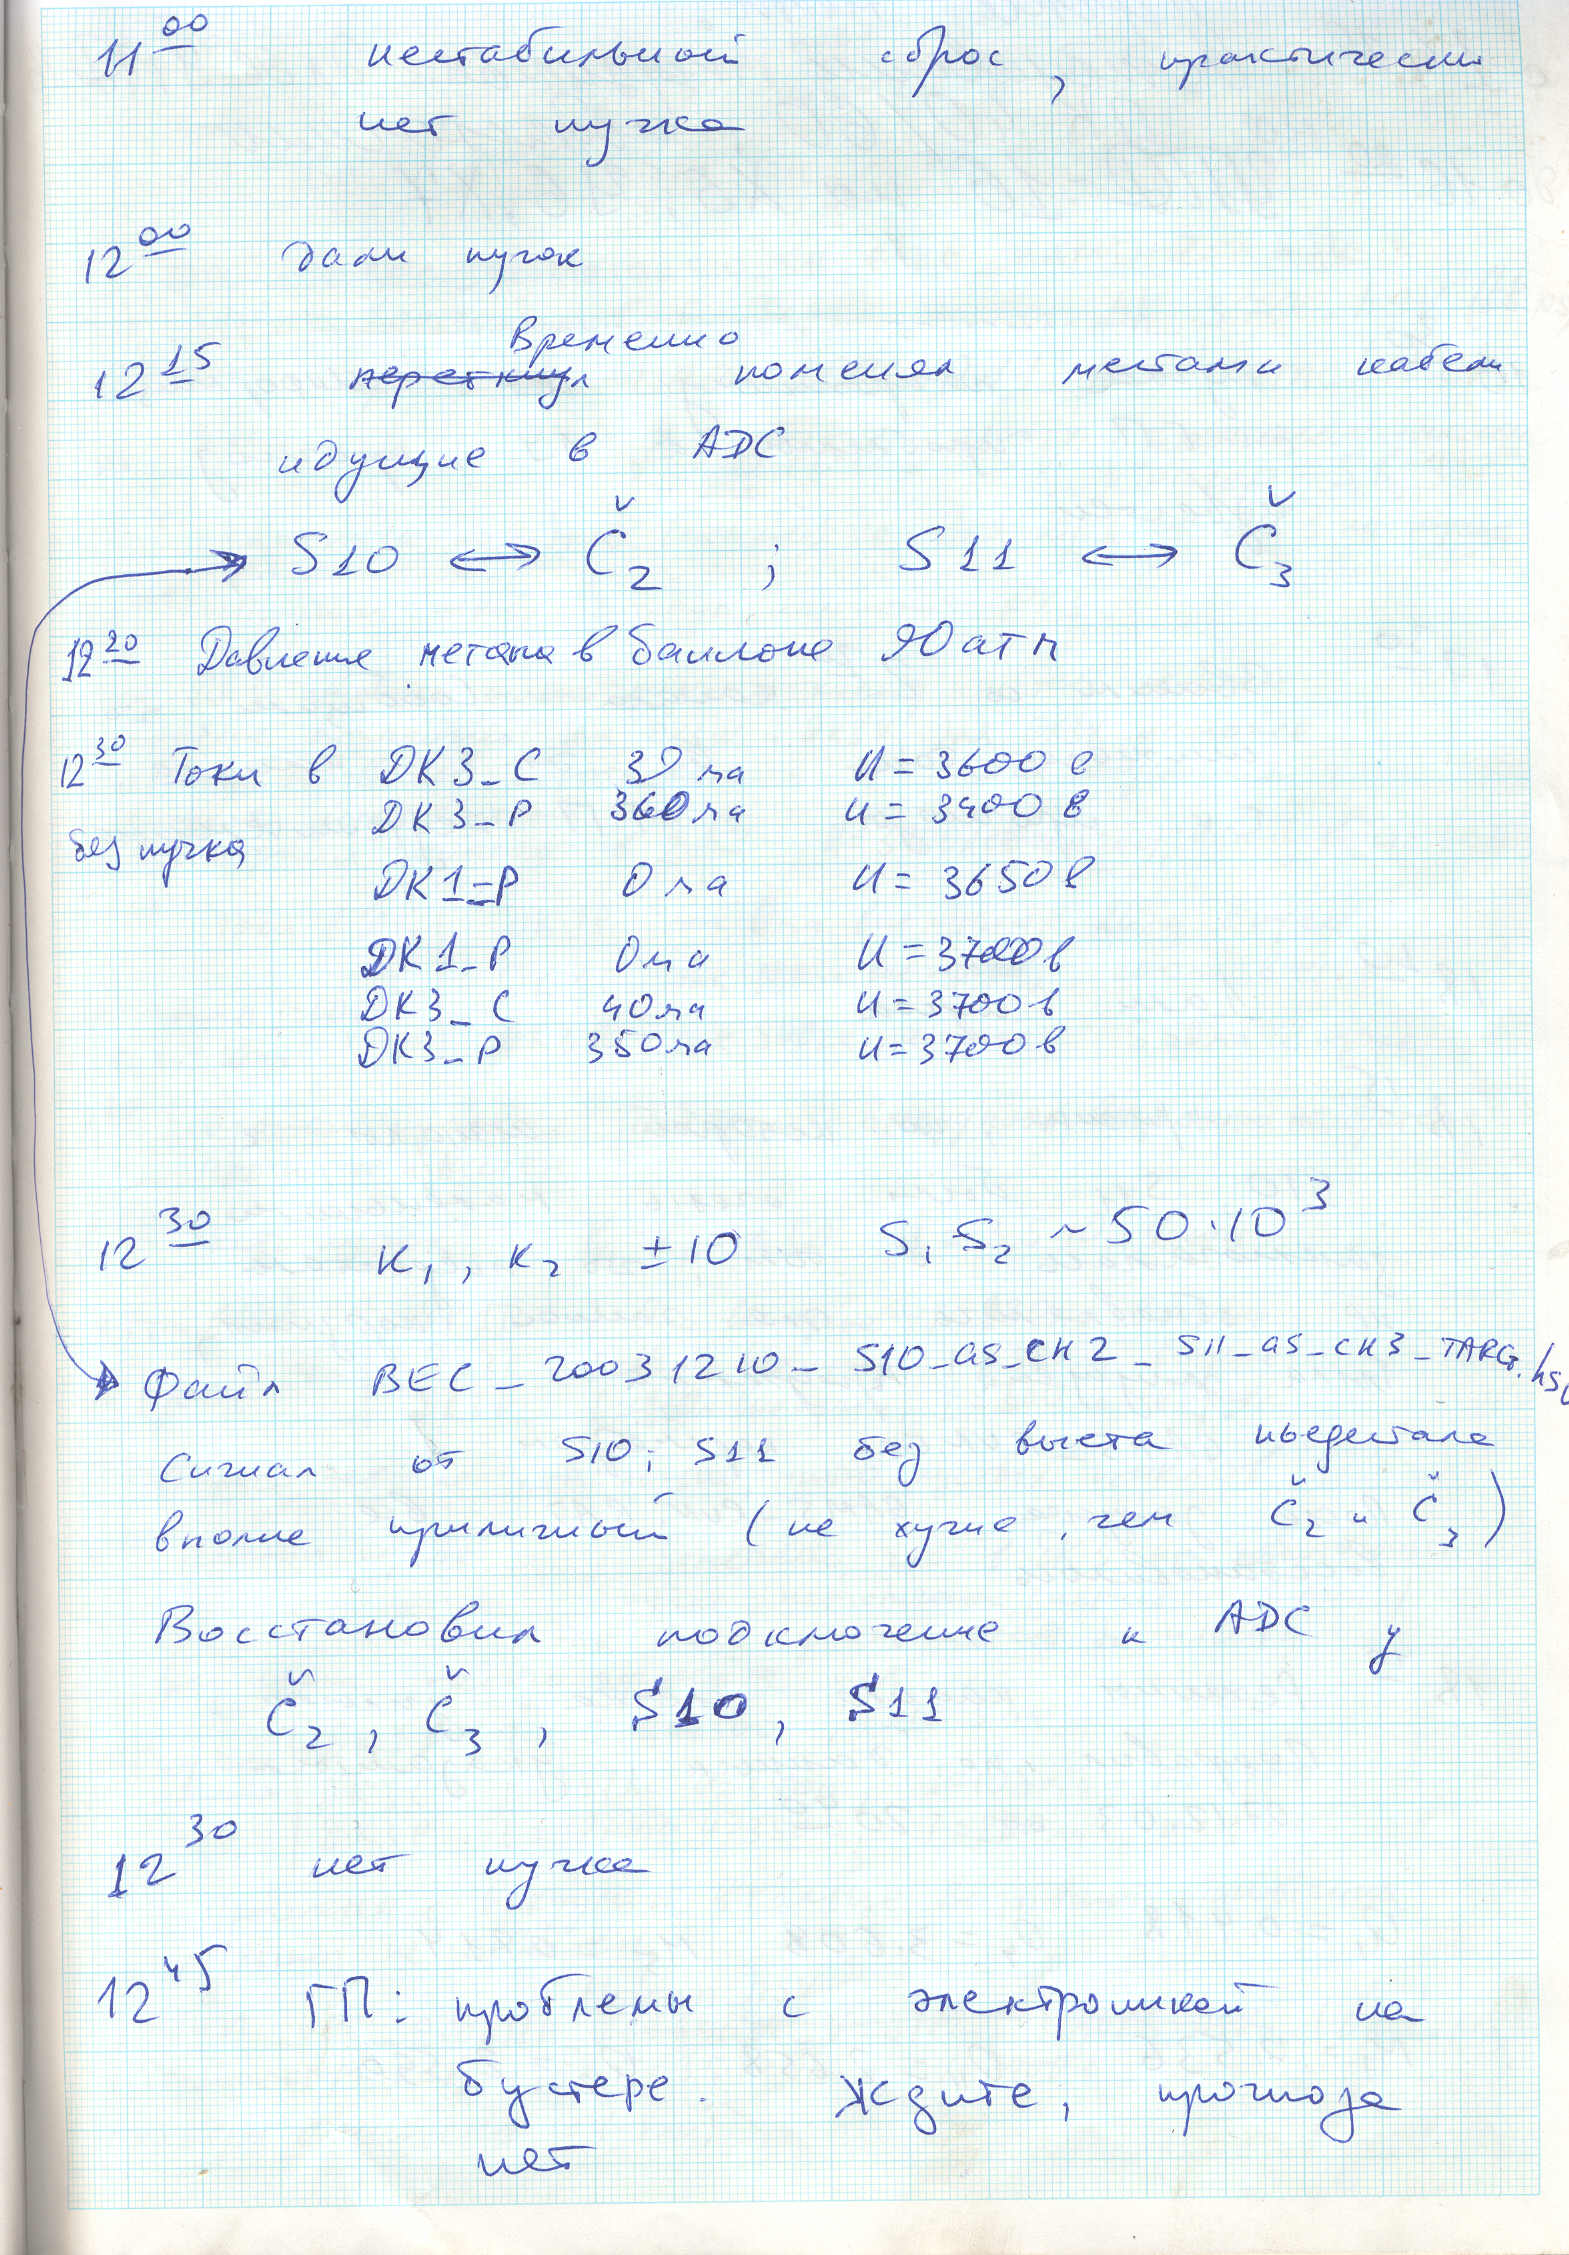 11 00 нестабильный сброс, практически
нет пучка
12 00 дали пучок
Временно
12 15 переткнул поменял местами кабели
идущие в ADC
S10 ↔ Č2 ; S11 ↔ Č3
12 20 Давление метана в баллоне 90 атм
12 30 Токи в ДК3_С 30 ма U = 3600 в
ДК3_Р 360 ма U = 3400 в
без пучка
ДК1_Р 0 ма U = 3650 в
ДК1_Р 0 ма U = 3700 в
ДК3_С 40 ма U = 3700 в
ДК3_Р 350 ма U = 3700 в
12 30 К1, К2 ±10 S1 S2 ~ 50·10³
Файл BEC_20031210_S10_as_CH2_S11_as_CH3_TARG.
Сигнал от S10; S11 без вычета пьедестала
вполне приличный (не хуже, чем Č2 и Č3)
Восстановил подключение к ADC у
Č2, Č3, S10, S11
12 30 нет пучка
12 45 ГП: проблемы с электроникой на
бустере. Ждите, прогноза
нет